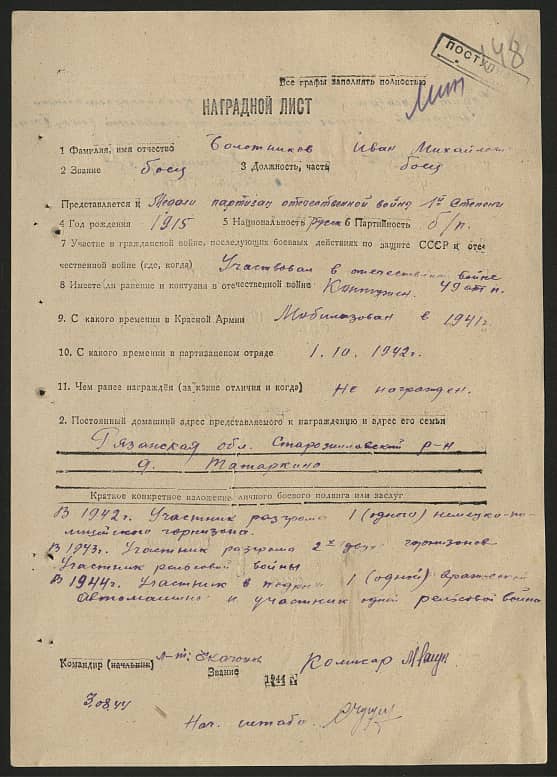 ПОСТУП
148
Все графы заполнять полностью
НАГРАДНОЙ ЛИСТ
1 Фамилия, имя отчество Болотников Иван Михайлов
2 Звание боец 3 Должность, часть боец
Представляется к Медали партизан отечественной войны 1ой Степени
4 Год рождения 1915 5 Национальность русск 6 Партийность б/п.
7 Участие в гражданской войне, последующих боевых действиях по защите СССР и оте
чественной войне (где, когда) Участвовал в отечественной войне
8 Имеет ли ранение и контузии в отечественной войне Контужен.
9. С какого времени в Красной Армии Мобилизован в 1941г.
10. С какого времени в партизанском отряде 1.10.1942г.
11. Чем ранее награждён (за какие отличия и когда) Не награжден.
2. Постоянный домашний адрес представляемого к награждению и адрес его семьи
Рязанская обл. Старожиловский р-н
д. Татаркино
Краткое конкретное изложение личного боевого подвига или заслуг
В 1942г. Участник разгрома 1 (одного) немецко-по-
лицейского гарнизона.
В 1943г. Участник разгрома 2х двух гарнизонов
Участник рельсовой войны
В 1944г. Участник в подрыв 1 (одной) вражеской
Автомашины и участник одной рельсовой войны
Командир (начальник) л-т.
Звание
Комисар
1944 г.
3.08.44
Нач. штаба.